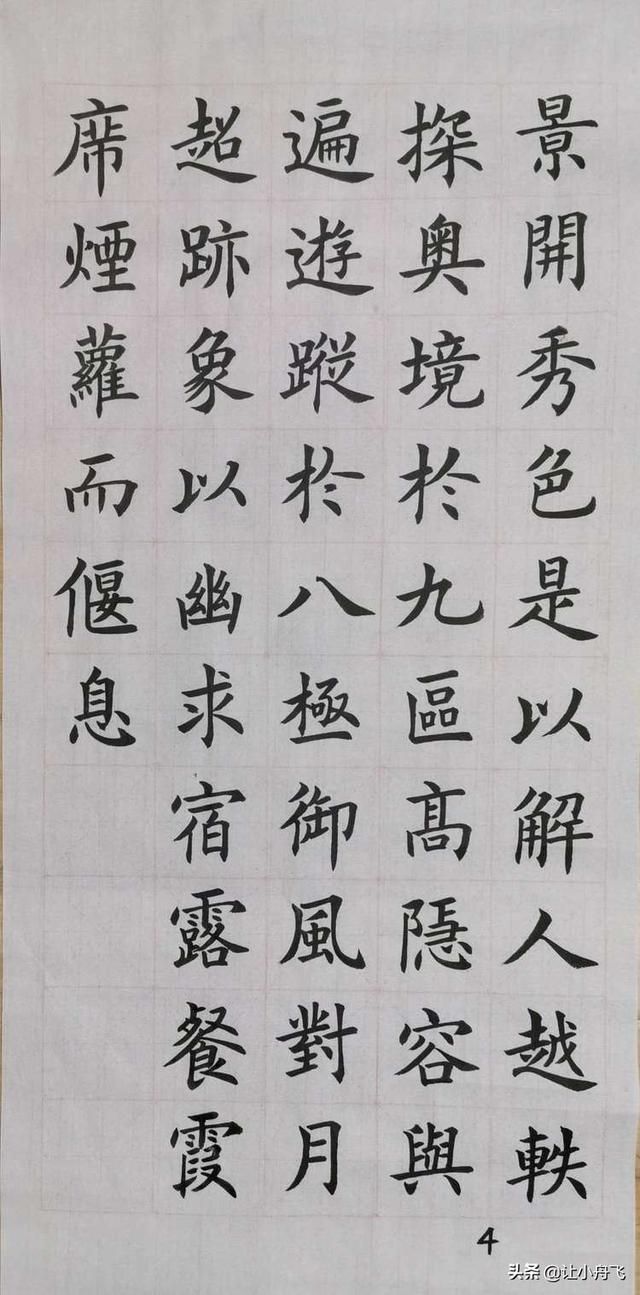 景開秀色是以解人越軼
探奧境於九區高隱容與
遍遊蹤於八極御風對月
超跡象以幽求宿露餐霞
席煙蘿而偃息
4
头条 @让小舟飞